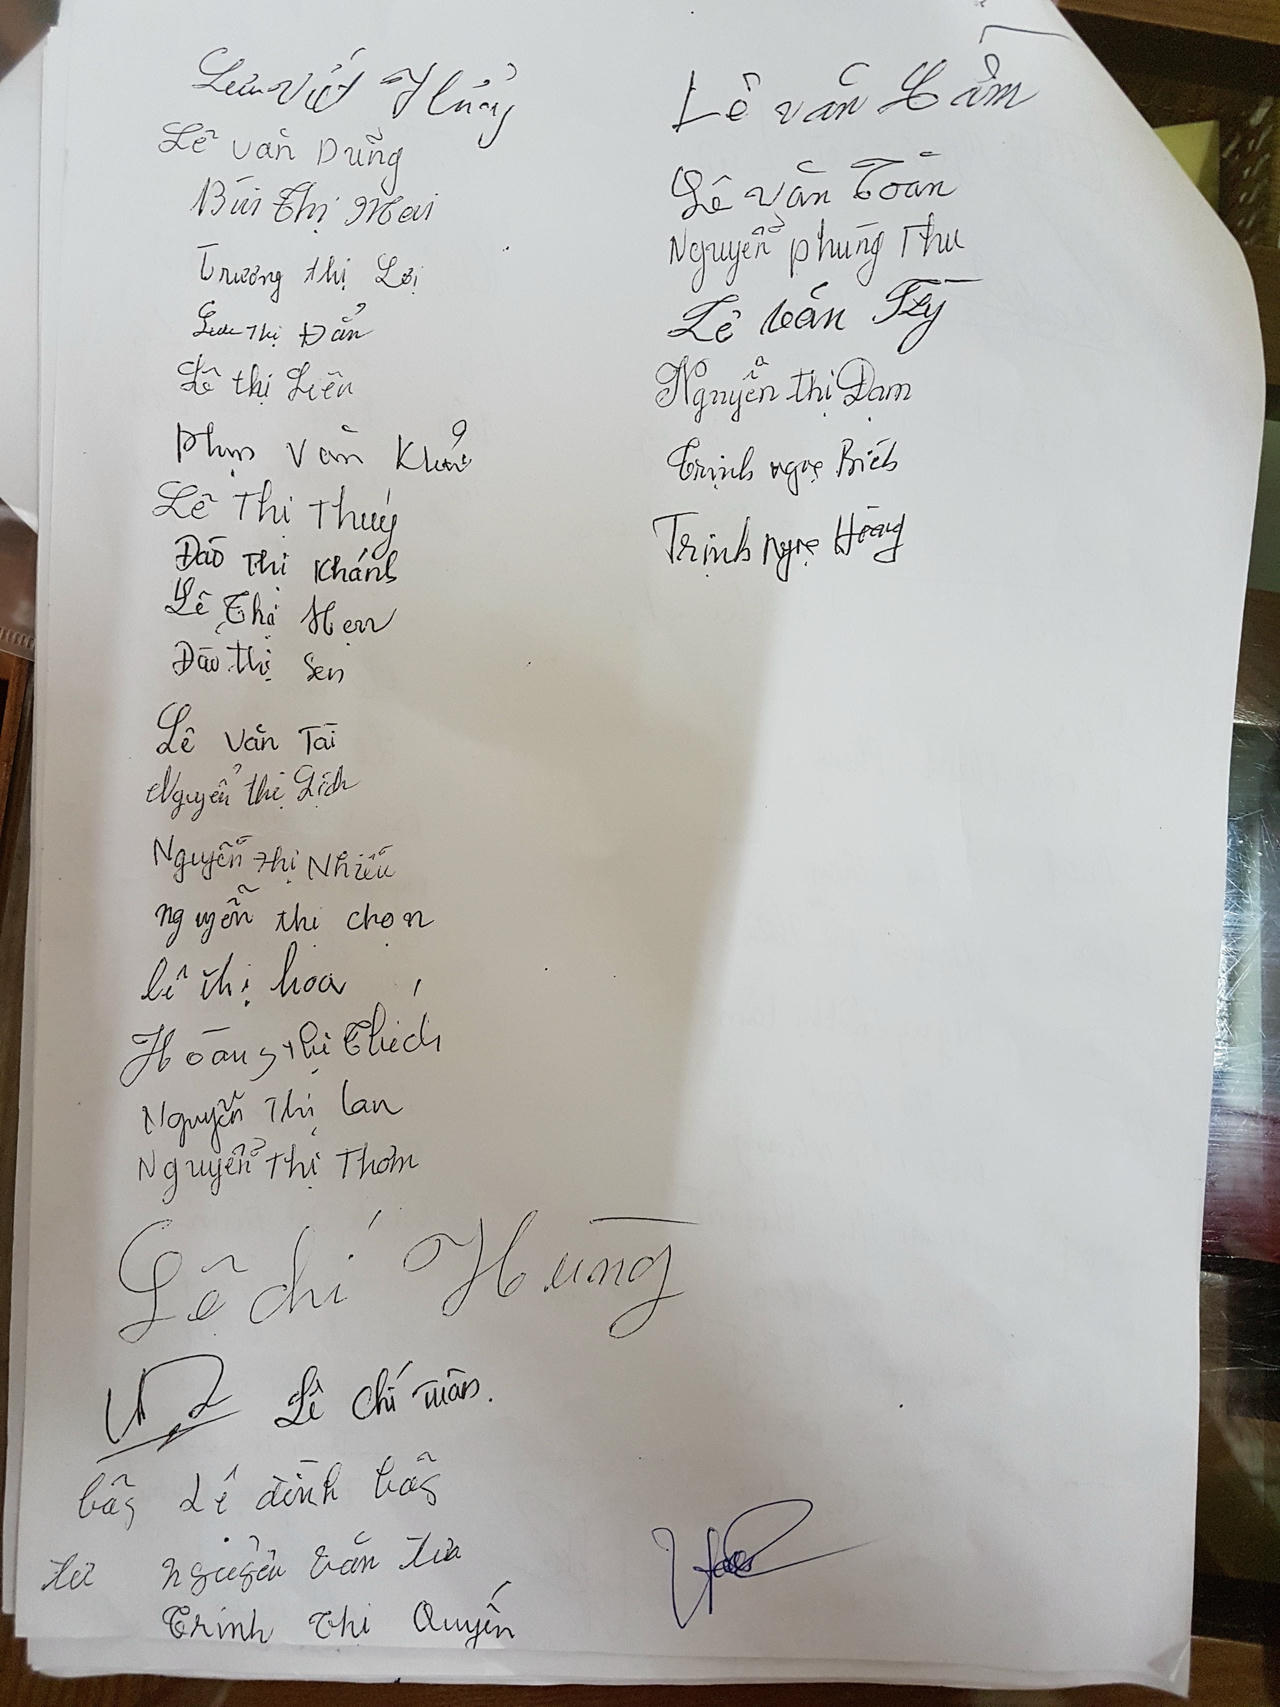 Lưu Viết Thủy
Lê Văn Dũng
Bùi Thị Mai
Trương Thị Lợi
Lưu Thị Đản
Lê Thị Liên
Phạm Văn Khả
Lê Thị Thuý
Đào Thị Khánh
Lê Thị Hẹn
Đào Thị Sen
Lê Văn Tài
Nguyễn Thị Lịch
Nguyễn Thị Nhiễu
Nguyễn Thị Chọn
lê thị hoa
Hoàng Thị Thích
Nguyễn Thị Lan
Nguyễn Thị Thơm
Lê Chí Hùng
Lê Chí Tuân.
Lê Đình
Nguyễn Văn
Trịnh Thị Quyến
Lê Văn
Lê Văn Toàn
Nguyễn Phùng Thu
Lê Văn Tỵ
Nguyễn Thị Đạm
Trịnh Ngọc Bích
Trịnh Ngọc Hoàng